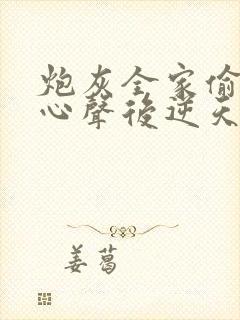 炮灰全家偷
心聲後逆天
姜葛